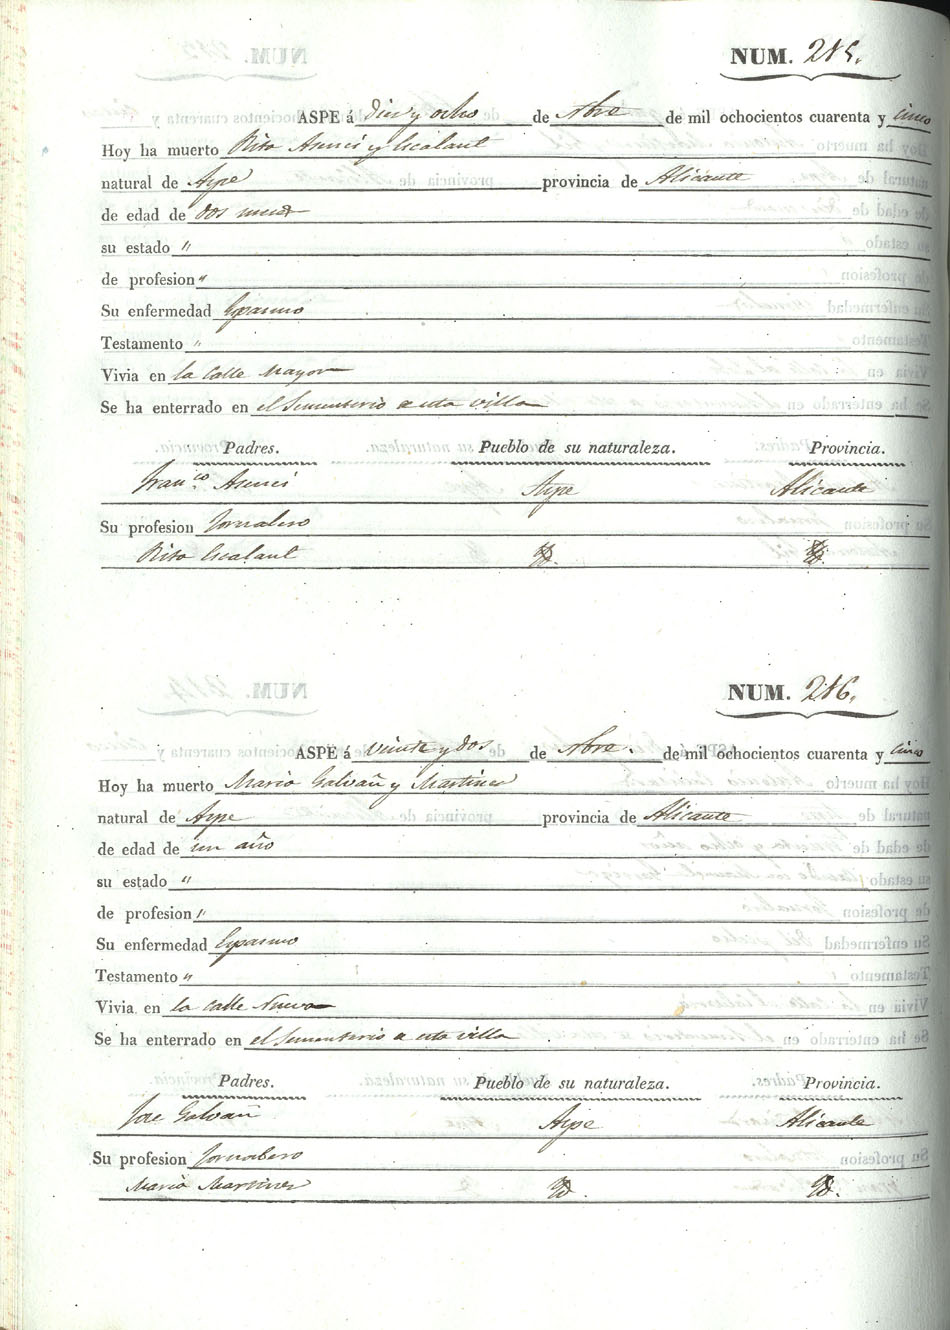 NUM. 285.
ASPE á Diez y ocho de Nbre de mil ochocientos cuarenta y cinco
Hoy ha muerto Rita Asenci y Escalant
natural de Aspe provincia de Alicante
de edad de dos meses
su estado "
de profesion "
Su enfermedad Espasmo
Testamento "
Vivia en la Calle Mayor
Se ha enterrado en el Sementerio a esta villa
Padres. Pueblo de su naturaleza. Provincia.
Fran.co Asenci Aspe Alicante
Su profesion Jornalero
Rita Escalant Yd. Yd.
NUM. 286.
ASPE á veinte y dos de Nbre. de mil ochocientos cuarenta y cinco
Hoy ha muerto Maria Galvañ y Martines
natural de Aspe provincia de Alicante
de edad de un año
su estado "
de profesion "
Su enfermedad Espasmo
Testamento "
Vivia en la calle Nueva
Se ha enterrado en el Sementerio a esta villa
Padres. Pueblo de su naturaleza. Provincia.
Jose Galvañ Aspe Alicante
Su profesion Jornalero
Maria Martines Yd. Yd.